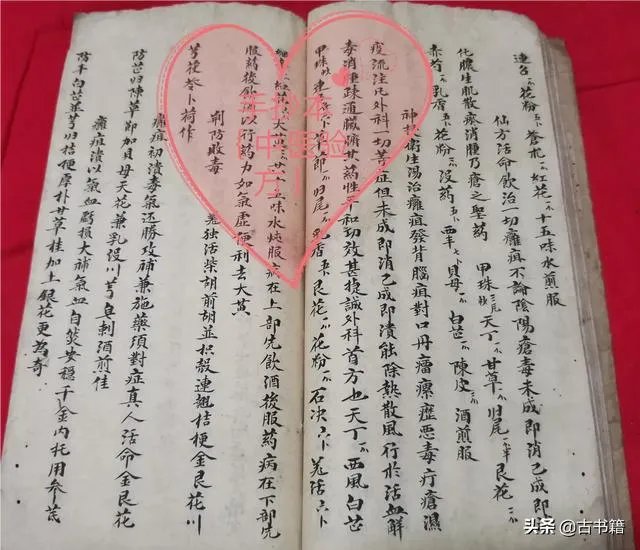 連召 花粉 蒼朮 紅花 十五味水煎服
仙方活命飲治一切癰疽不論陰陽瘡毒未成即消已成即
甲珠 天丁 甘草 归尾 艮花
化膿生肌散瘀消腫乃瘡之聖藥
赤芍 乳香 花粉 沒药 貝母 白芷 陳皮 酒煎服
神授衛生湯治癰疽發背腦疽對口丹瘤瘰癧悪毒疔瘡濕
疫流注凡外科一切等症但未成即消已成即潰能除熱散風行於活血解
毒消腫疎通臟腑甘药性平和功效甚捷誠外科首方也 天丁 西風 白芷
甲珠 連召 草節 归尾 乳香 艮花 花粉 石决 羌活
紅花 大黃 十五味水煎服 病在上部先飲酒後服药病在下部先
服药後飲酒以行药力如氣虚便利去大黄
荆防敗毒 羌独活柴胡前胡並枳殼連翹桔梗金艮花川
芎茯苓卜荷作
癰疽初潰毒氣还勝攻補兼施藥須對症真人活命金艮花
防芷归陳草節加貝母天花兼乳没川芎皂刺酒煎佳
癰疽潰以氣血虧損大補氣血自然安穏千金内托用參芪
防羊白芷芎归桔梗厚朴甘草桂加上銀花更為奇
手抄本
中医验
方
头条 @古书籍